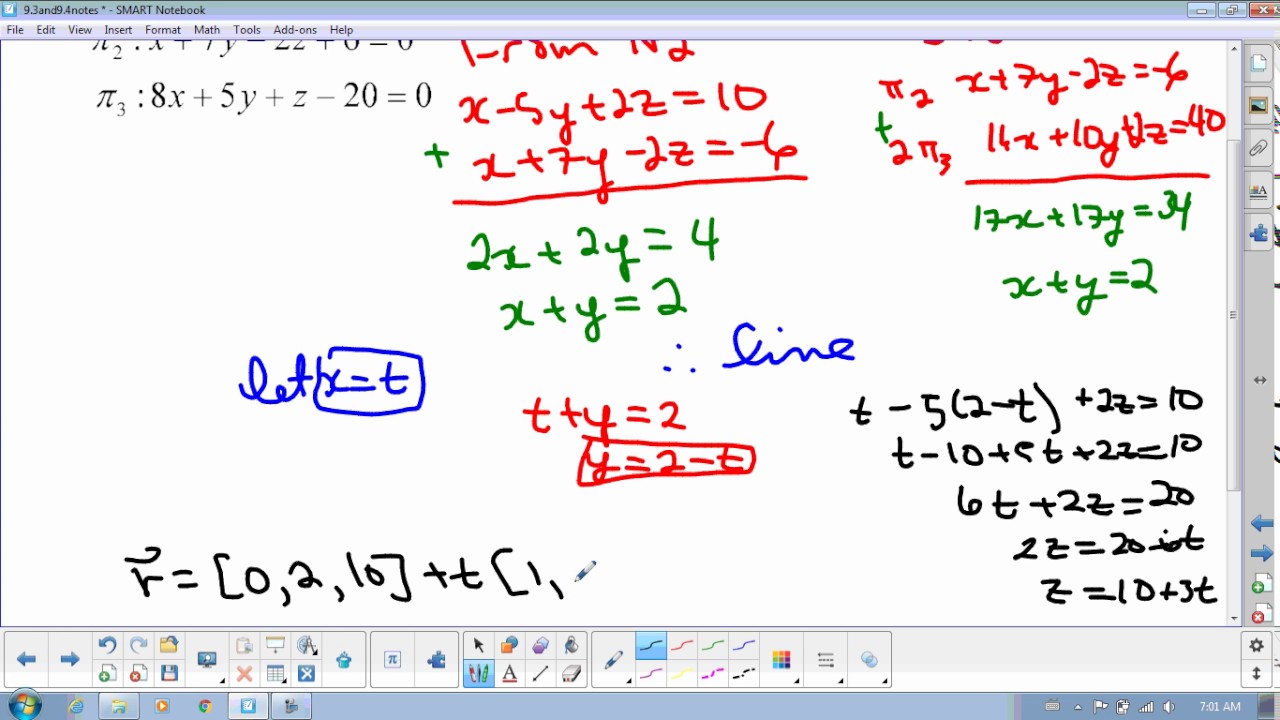 9.3and9.4notes * - SMART Notebook
File Edit View Insert Format Math Tools Add-ons Help
π₂ : x + 7y − 2z + 6 = 0
π₃ : 8x + 5y + z − 20 = 0
From π2
x - 5y + 2z = 10
+ x + 7y - 2z = -6
2x + 2y = 4
x + y = 2
π2 x + 7y - 2z = -6
+ 2π3 16x + 10y + 2z = 40
17x + 17y = 34
x + y = 2
∴ line
let x = t
t + y = 2
y = 2 - t
t - 5(2 - t) + 2z = 10
t - 10 + 5t + 2z = 10
6t + 2z = 20
2z = 20 - 6t
z = 10 + 3t
r⃗ = [0, 2, 10] + t [1,
7:01 AM